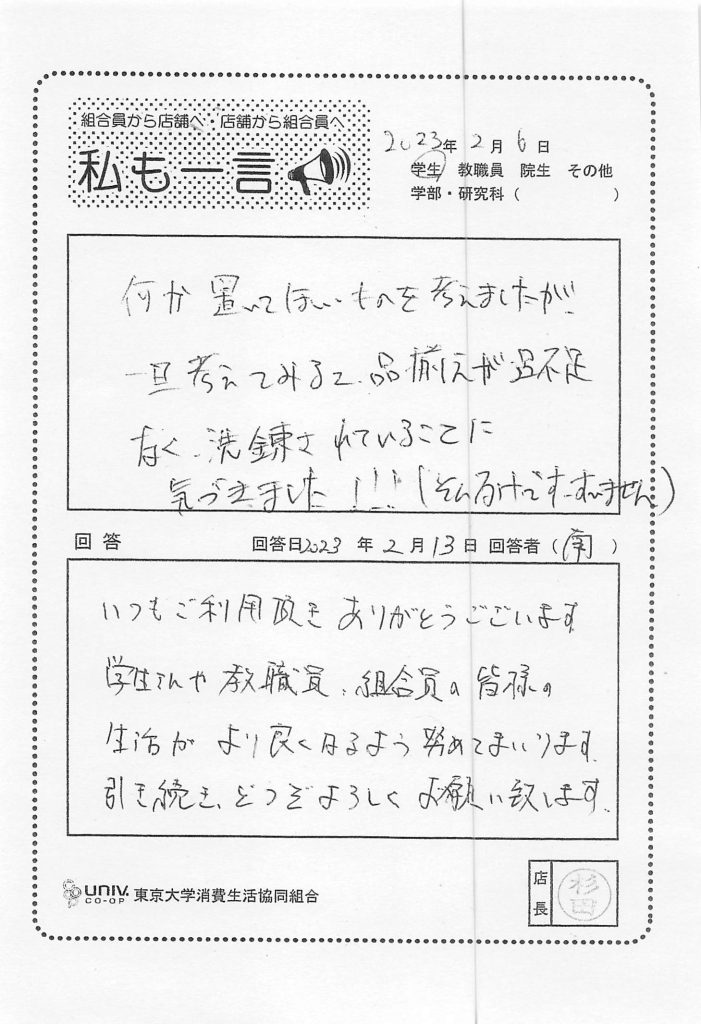 組合員から店舗へ 店舗から組合員へ
私も一言
2023年 2月 6日
学生 教職員 院生 その他
学部・研究科（ ）
何か置いてほしいものを考えましたが、
一旦考えてみると、品揃えが過不足
なく、洗錬されていることに
気づきました!!!（それだけです…すいません）
回答 回答日2023年2月13日 回答者（南）
いつもご利用頂きありがとうございます
学生さんや教職員、組合員の皆様の
生活がより良くなるよう努めてまいります
引き続き、どうぞよろしくお願い致します。
UNIV. CO-OP 東京大学消費生活協同組合
店長 杉田